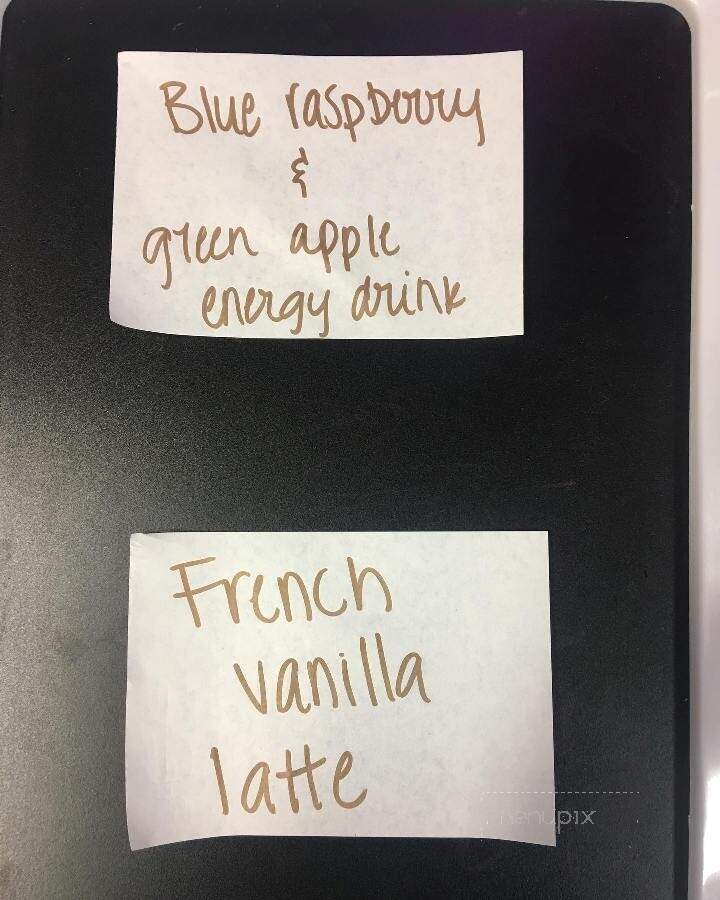 Blue raspberry
&
green apple
energy drink
French
vanilla
latte
menupix